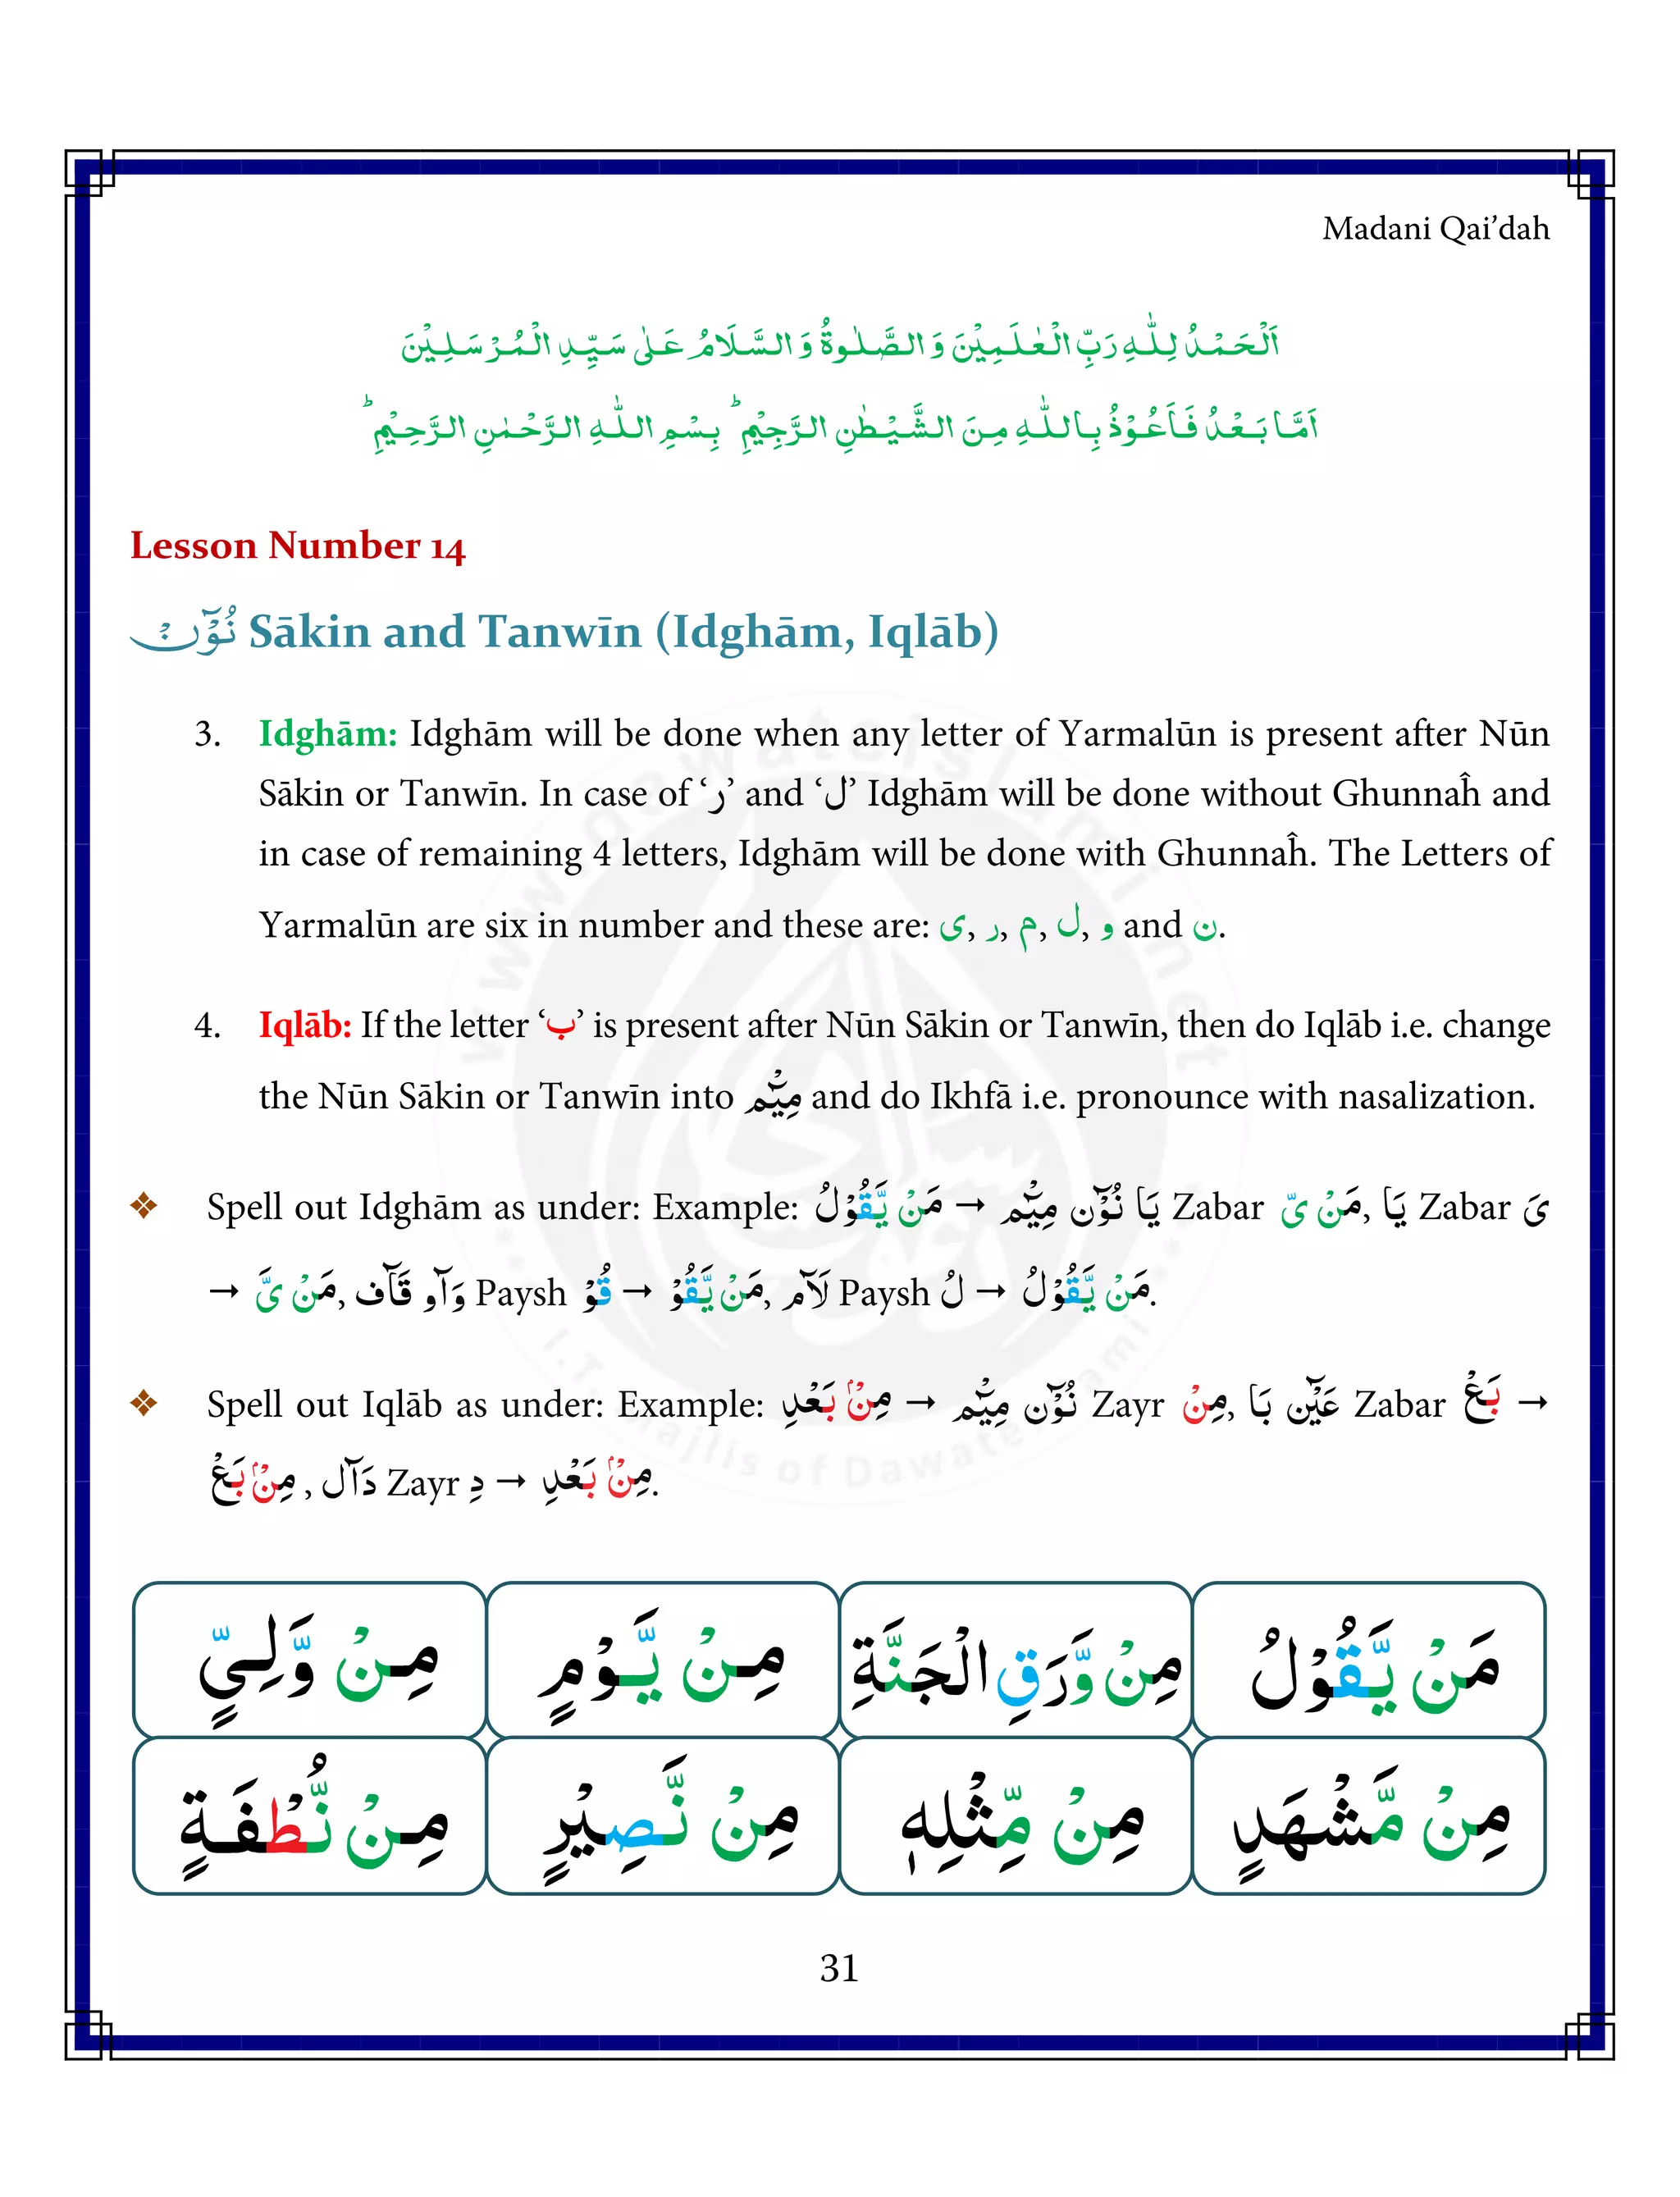 Madani Qai’dah
اَلْحَمْدُ لِلّٰهِ رَبِّ الْعٰلَمِيْنَ وَ الصَّلٰوةُ وَ السَّلَامُ عَلٰی سَيِّدِ الْمُرْسَلِيْنَ
اَمَّا بَعْدُ فَاَعُوْذُ بِاللّٰهِ مِنَ الشَّيْطٰنِ الرَّجِيْمِ ؕ بِسْمِ اللّٰهِ الرَّحْمٰنِ الرَّحِيْمِ ؕ
Lesson Number 14
نُوْٓنْ Sākin and Tanwīn (Idghām, Iqlāb)
3. Idghām: Idghām will be done when any letter of Yarmalūn is present after Nūn
Sākin or Tanwīn. In case of ‘ر’ and ‘ل’ Idghām will be done without Ghunnaĥ and
in case of remaining 4 letters, Idghām will be done with Ghunnaĥ. The Letters of
Yarmalūn are six in number and these are: ی, ر, م, ل, و and ن.
4. Iqlāb: If the letter ‘ب’ is present after Nūn Sākin or Tanwīn, then do Iqlāb i.e. change
the Nūn Sākin or Tanwīn into مِيْٓم and do Ikhfā i.e. pronounce with nasalization.
❖ Spell out Idghām as under: Example: مَنْ يَّقُوْلُ → مِيْٓم نُوْٓن يَا Zabar مَنْ یّ, يَا Zabar یَ
→ مَنْ یَّ, قَآف وَآو Paysh قُوْ → مَنْ يَّقُوْ, لَآم Paysh لُ → مَنْ يَّقُوْلُ.
❖ Spell out Iqlāb as under: Example: مِنْۢ بَعْدِ → مِيْٓم نُوْٓن Zayr مِنْ, بَا عَيْٓن Zabar بَعْ →
مِنْۢ بَعْ , دَآل Zayr دِ → مِنْۢ بَعْدِ.
مَنْ يَّقُوْلُ مِنْ وَّرَقِ الْجَنَّةِ مِنْ يَّوْمٍ مِنْ وَّلِيٍّ
مِنْ مَّشْهَدٍ مِنْ مِّثْلِهٖ مِنْ نَّصِيْرٍ مِنْ نُّطْفَةٍ
31
www.dawateislami.net
I.T. Majlis of DawateIslami